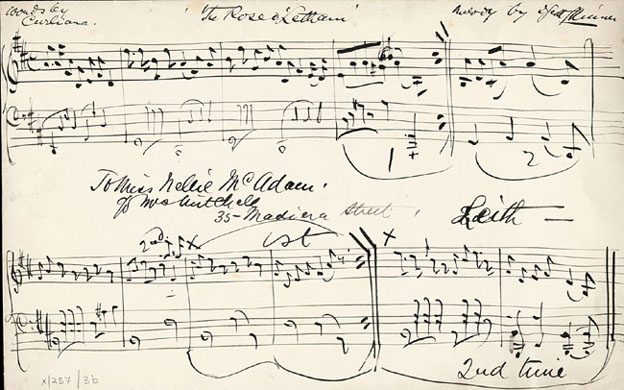 Words by 'The Rose o' Letham' melody by
1 2
To Miss Nellie McAdam.
c/o Mrs Mitchell
35 - Madiera Street, Leith —
2nd X 1st X
2nd time
X/257/36